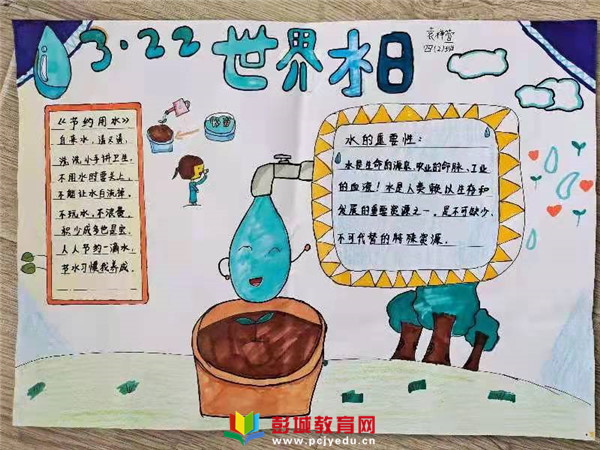 3·22
世界水日
四(2)班
《节约用水》
自来水,清又清,
洗洗小手讲卫生。
不用水时要关上,
不能让水白流淌。
不玩水,不浪费,
积少成多是宝
人人节约一滴水,
节水习惯我养成。
水的重要性:
水是生命的源泉,农业的命脉、工业
的血液!水是人类赖以生存和
发展的重要资源之一,是不可缺少、
不可代替的特殊资源。
彭城教育网
www.pcjyedu.cn